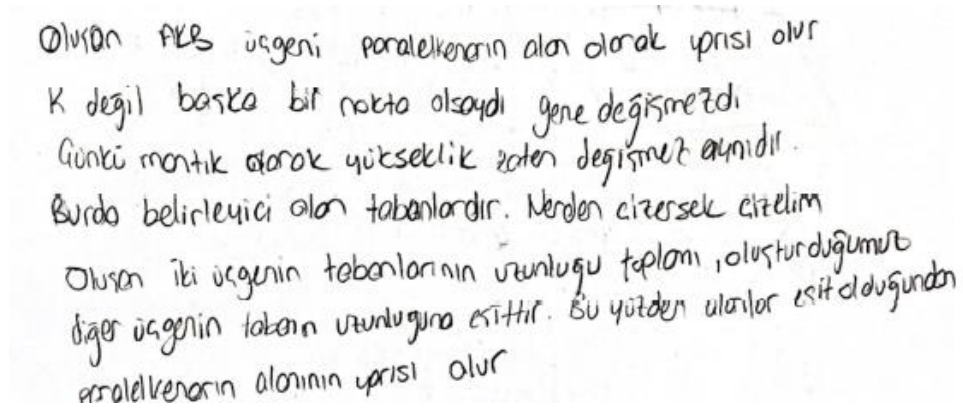 Oluşan AKB üçgeni paralelkenarın alan olarak yarısı olur
K değil başka bir nokta olsaydı gene değişmezdi
Çünkü mantık olarak yükseklik zaten değişmez aynıdır.
Burda belirleyici olan tabanlardır. Nerden çizersek çizelim
Oluşan iki üçgenin tabanlarının uzunluğu toplamı, oluşturduğumuz
diğer üçgenin tabanın uzunluğuna eşittir. Bu yüzden alanlar eşit olduğundan
paralelkenarın alanının yarısı olur